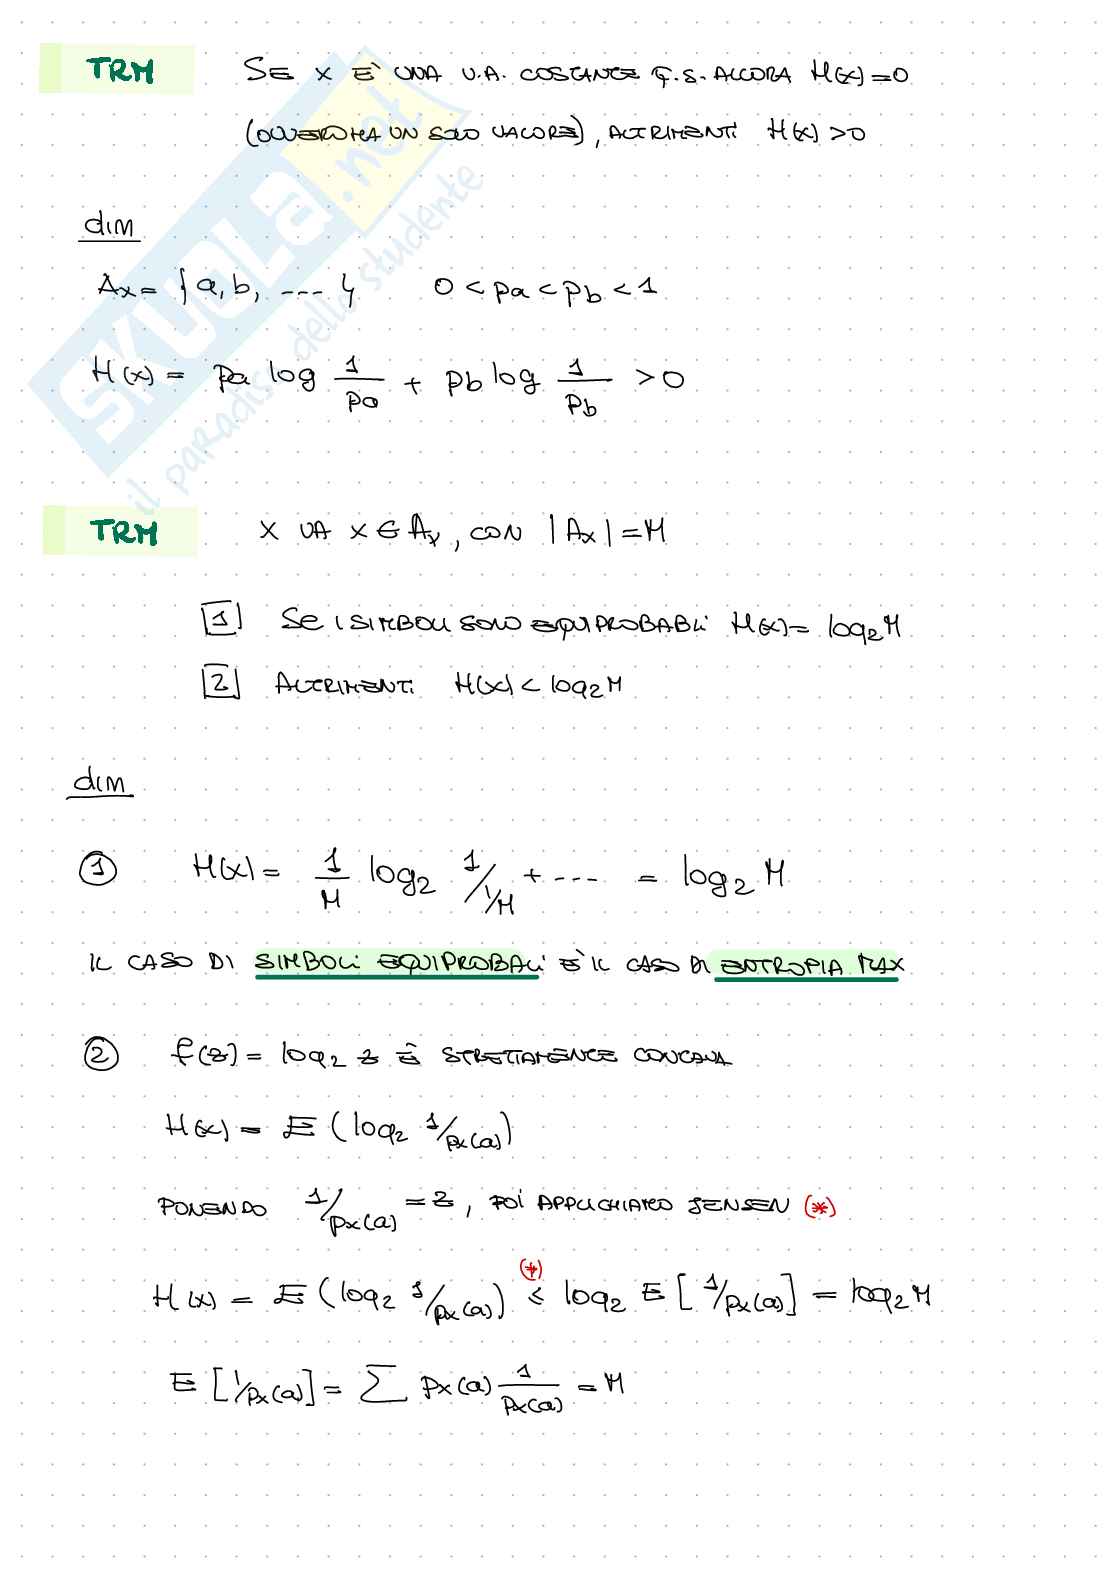 TRM SE X È UNA V.A. COSTANTE Q.S. ALLORA H(X)=0
(OVVERO HA UN SOLO VALORE), ALTRIMENTI H(X)>0
dim
Ax = {a, b, ...} 0 < pa < pb < 1
H(x) = pa log 1/pa + pb log 1/pb > 0
TRM X VA X ∈ Ax, CON |Ax| = M
1 SE I SIMBOLI SONO EQUIPROBABLI H(X) = log2 M
2 ALTRIMENTI H(X) < log2 M
dim
1 H(X) = 1/M log2 1/1/M + ... = log2 M
IL CASO DI SIMBOLI EQUIPROBALI È IL CASO DI ENTROPIA MAX
2 f(z) = log2 z È STRETTAMENTE CONCAVA
H(X) = E (log2 1/px(a))
PONENDO 1/px(a) = z, POI APPLICHIAMO JENSEN (*)
(*)
H(X) = E (log2 1/px(a)) ≤ log2 E [1/px(a)] = log2 M
E [1/px(a)] = ∑ px(a) 1/px(a) = M
SKUOLA.net
il paradiso dello studente